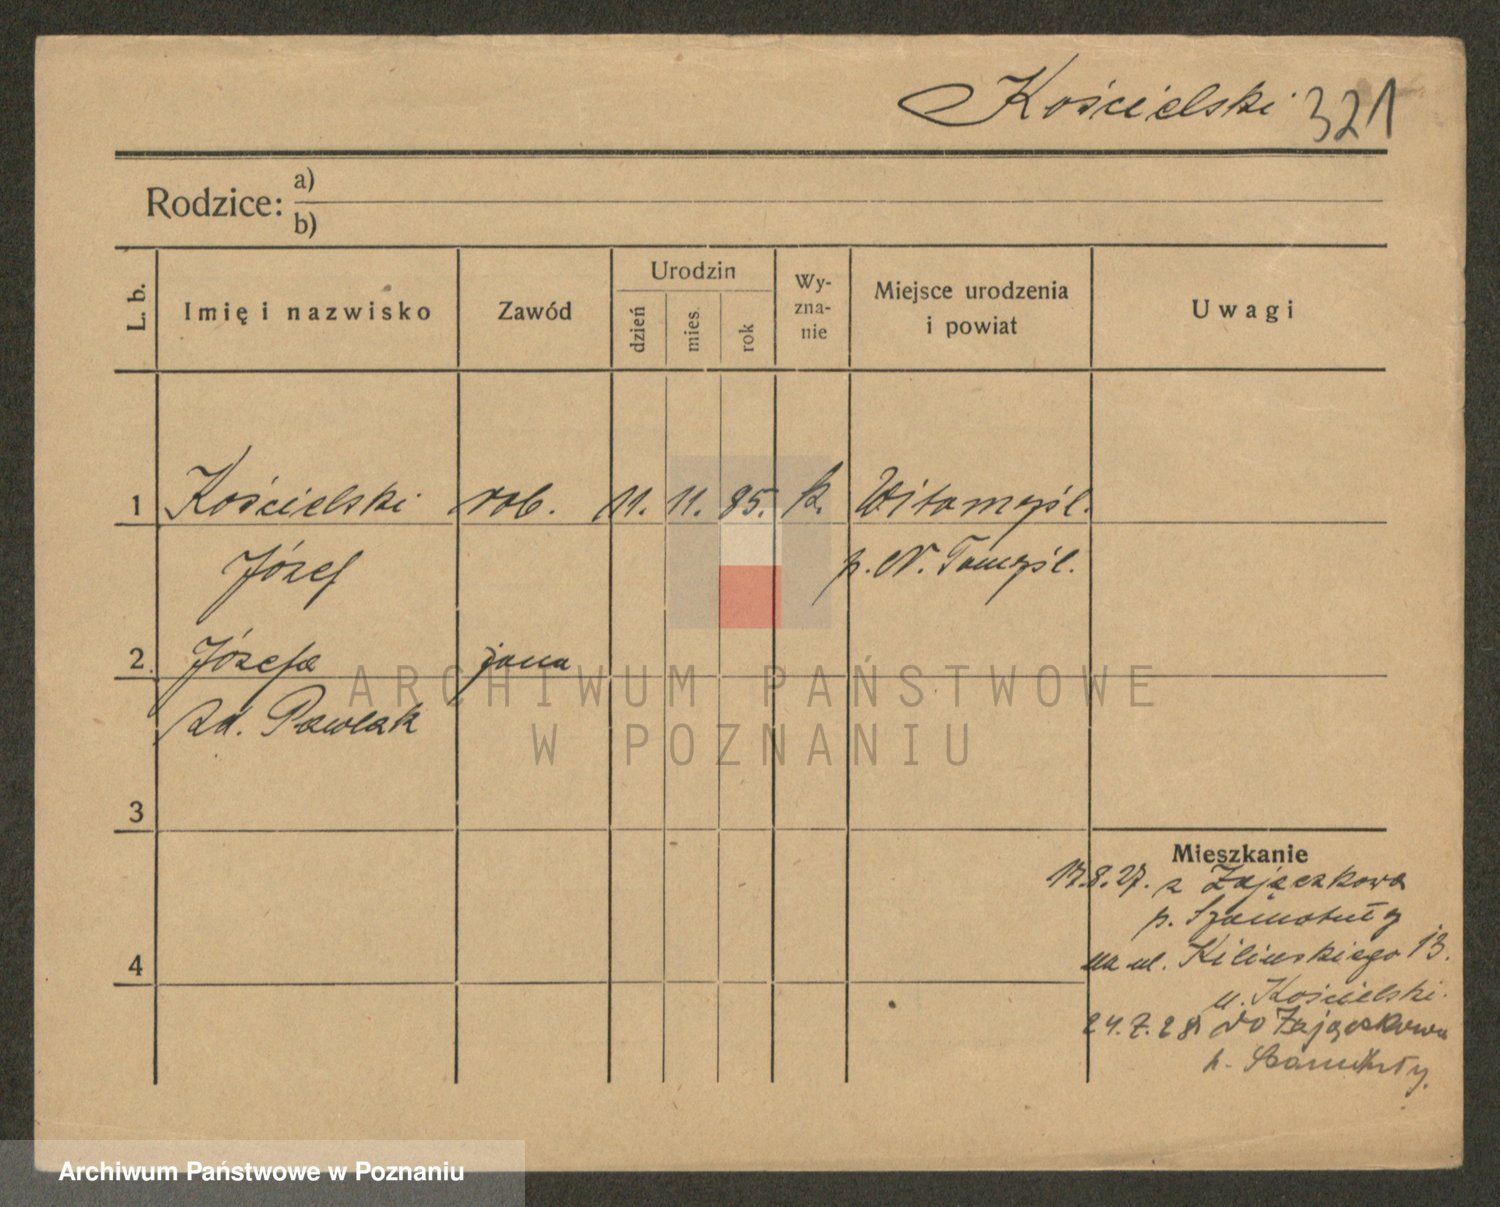 Kościelski 321
Rodzice: a)
b)
L. b. Imię i nazwisko Zawód Urodzin dzień mies. rok Wy-zna-nie Miejsce urodzenia i powiat Uwagi
1 Kościelski rob. 11. 11. 85. k. Witomyśl.
Józef p. N. Tomyśl.
2. Józefa żona
zd. Pawlak
ARCHIWUM PAŃSTWOWE
W POZNANIU
3
Mieszkanie
17.8.27. z Zajączkowa
p. Szamotuły
4 na ul. Kilińskiego 13.
u. Kościelski.
24.7.28 do Zajączkowa
p. Szamotuły.
Archiwum Państwowe w Poznaniu